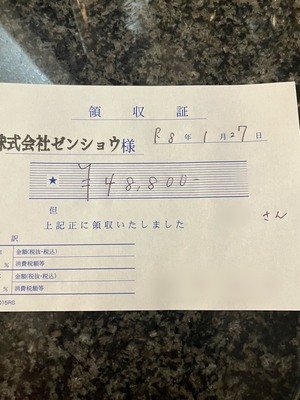 領収証
株式会社ゼンショウ様 R8年1月27日
★ ¥48,800-
但 さん
上記正に領収いたしました
訳
金額(税抜・税込)
% 消費税額等
金額(税抜・税込)
% 消費税額等
015RS